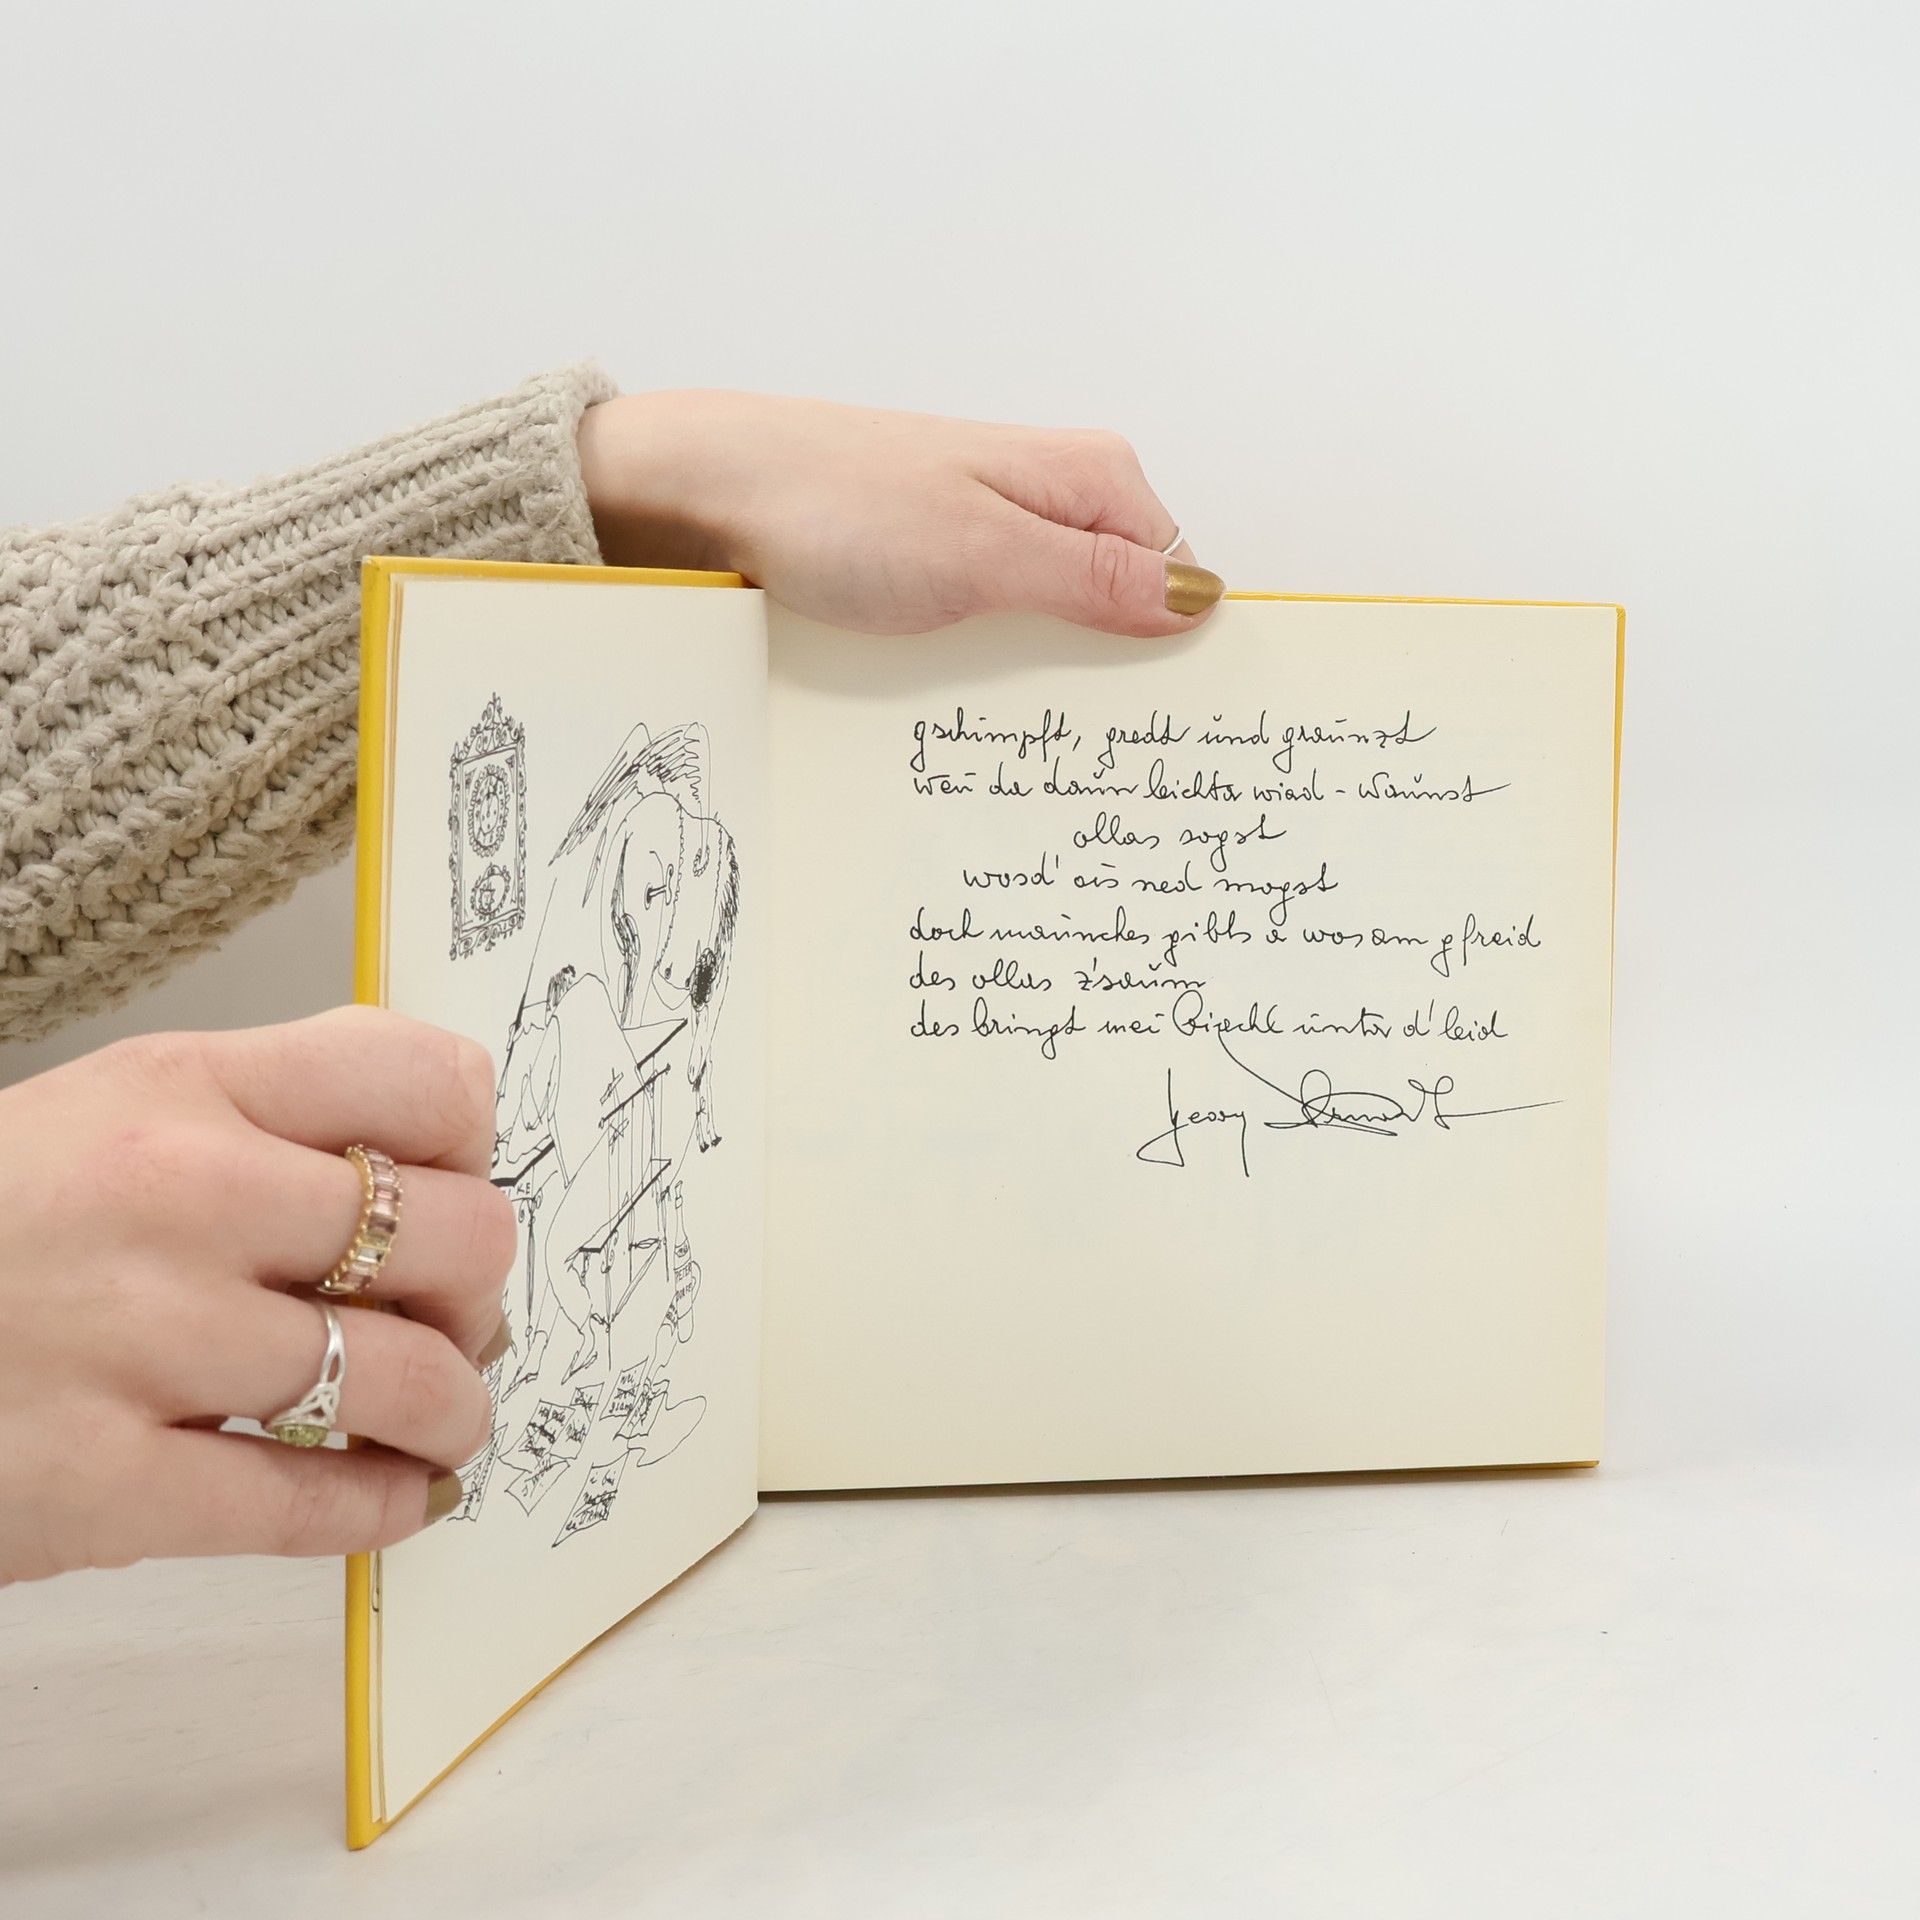 gschimpft, gredt und graunzt
weu da daun leichta wiad - waunst
ollas sogst
wosd' ois ned mogst
doch maunches gibts a wosam gfreid
des ollas z'saum
des bringt mei biachl unta d'leid
Georg
KE
PETER